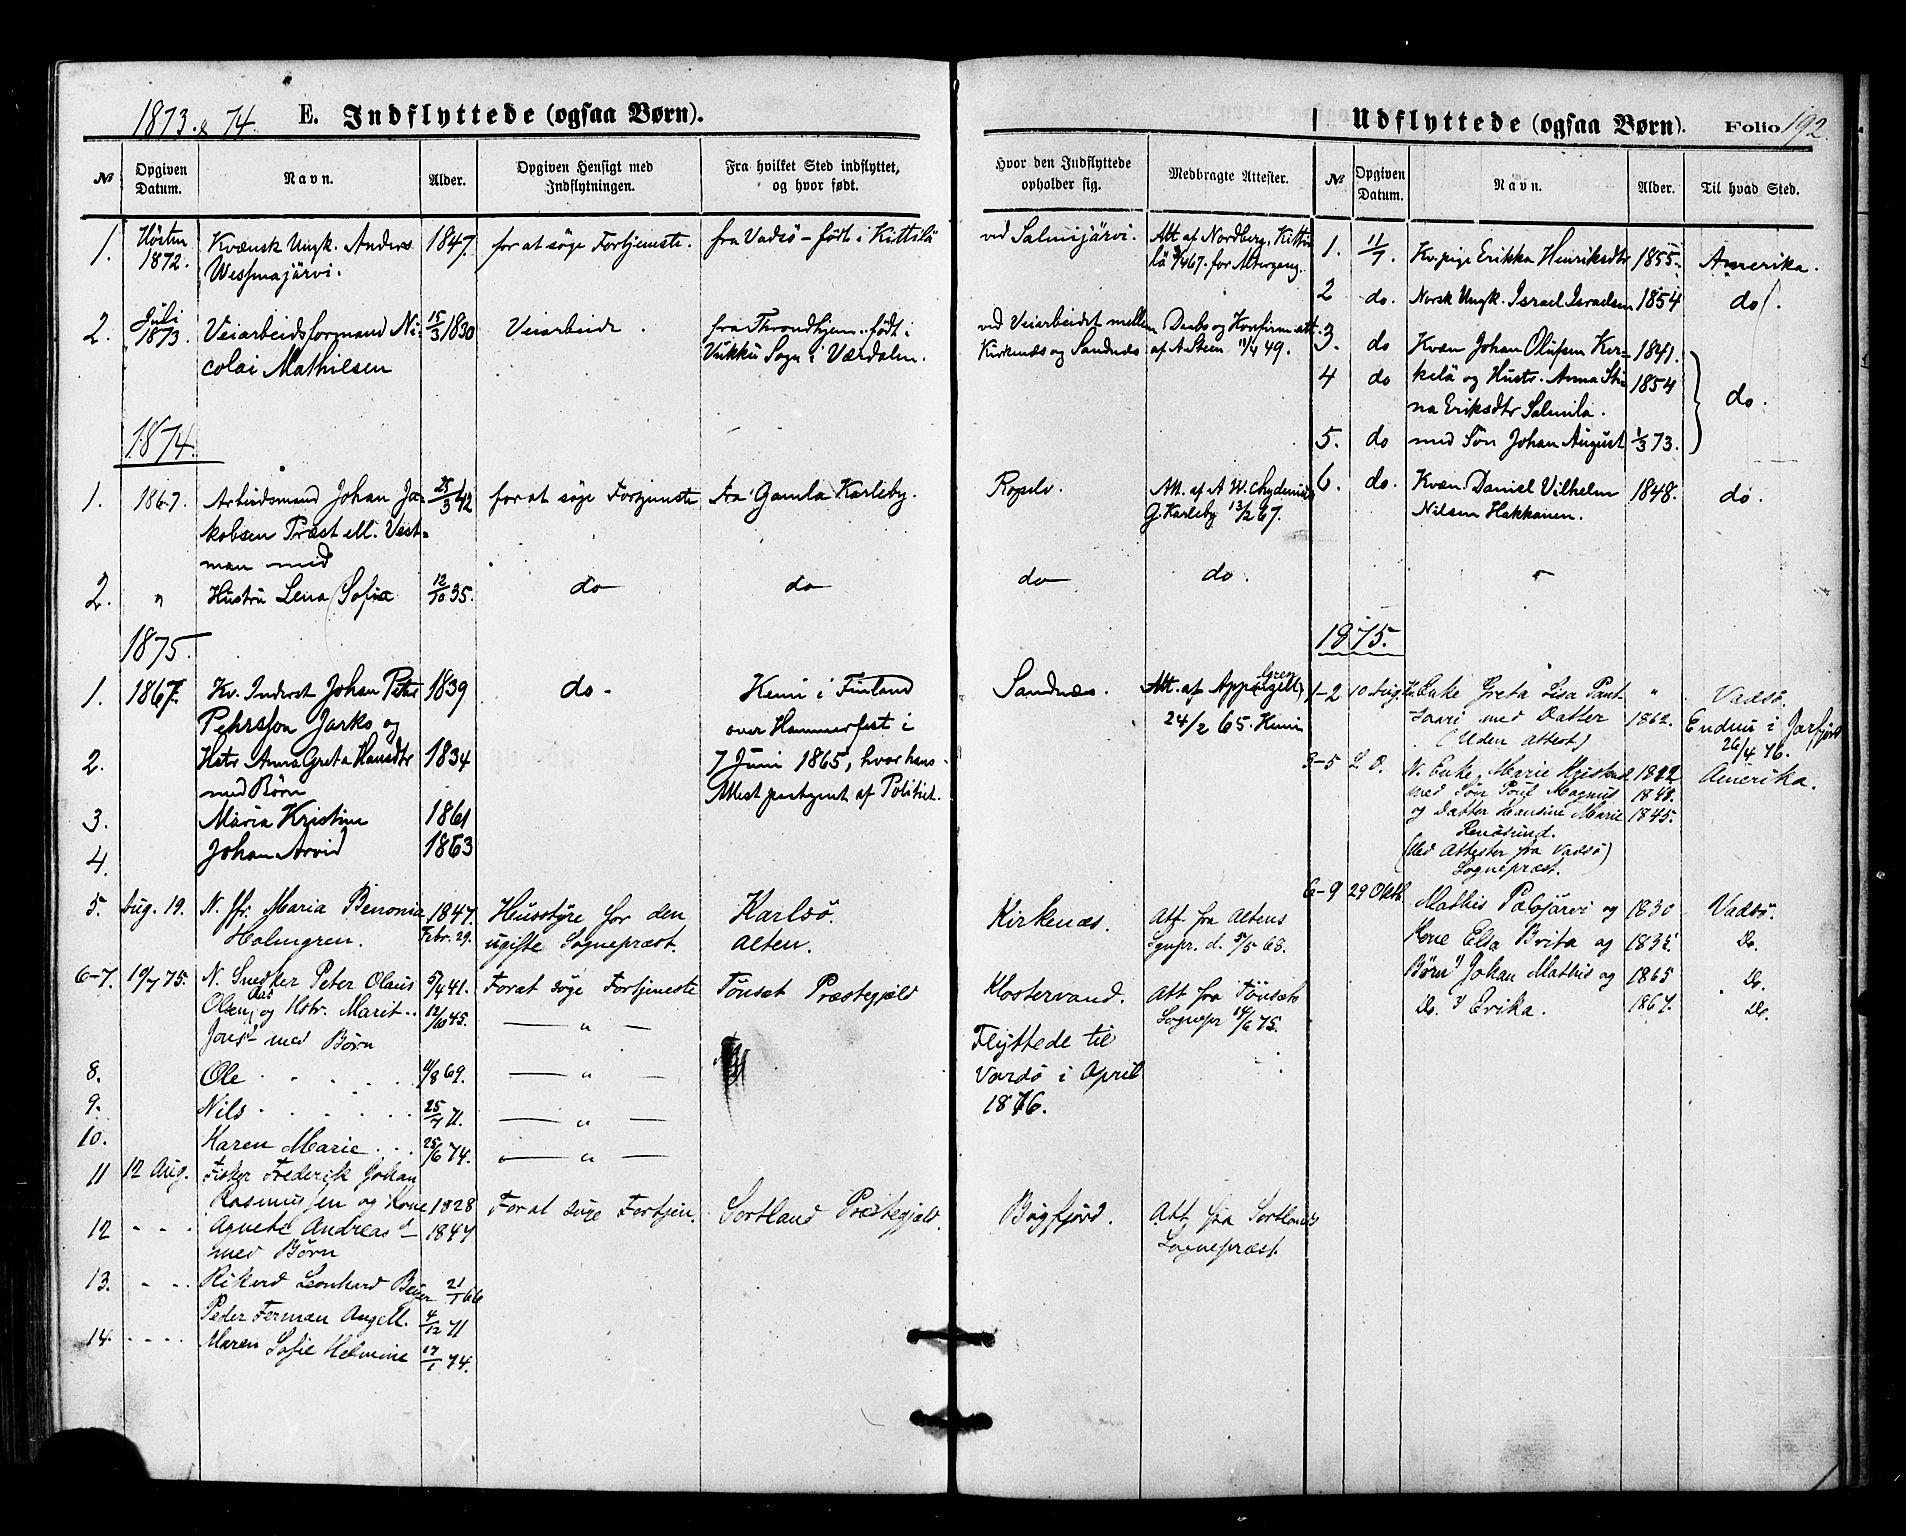 1873 & 74. E. Indflyttede (ogsaa Børn).
№ Opgiven Datum. Navn. Alder. Opgiven Hensigt med Indflytningen. Fra hvilket Sted indflyttet, og hvor født.
1. Høsten 1872. Kvænsk Ungk. Anders 1847. for at søge Fortjeneste. fra Vadsö – født i Kittilä
Wessmajärvi.
2. Juli 1873. Veiarbeidsformand Ni- 15/3 1830 Veiarbeide. fra Throndhjem. født i
colai Mathisen Vukku Sogn i Værdalen.
1874.
1. 1867. Arbeidsmand Johan Ja- 25/3 42 for at søge Fortjeneste fra Gamla Karleby.
kobsen Præst ell. Vest-
man med
2. " Hustru Lena Sofia 12/10 35. do do
1875.
1. 1867. Kv. Inderst Johan Peter 1839 do. Kemi i Finland
Pehrsson Jarko og over Hammerfest i
2. Hstr Anna Greta Hansdtr 1834 7 Juni 1865, hvor hans
med Børn Attest partegnet af Politiet.
3. Maria Kristine 1861
4. Johan Arvid 1863
5. Aug. 19. N. Maria Benonia 1847. Husstyre for den Karlsö.
Holmgren. Febr. 29. ugifte Sognepræst. Alten.
6-7. 19/7 75. N. Snedker Peter Olaus 5/4 41. For at søge Fortjeneste Tönset Præstegjeld
Olsen og Hstr. Marit 12/10 45. — " —
Jons d— med Børn
8. Ole . . . . 11/8 69. — " —
9. Nils . . . . . 25/7 71. — " —
10. Karen Marie . . . 25/6 74. — " —
11 12 Aug. Fisker Frederik Johan
Rasmussen og Kone 1828 For at søge Fortjen. Sortland Præstegjeld.
12 - - - Agnete Andreas d— 1844
med Børn
13. - - - Rikard Leonhard Beyer 21/1 66
Peder Ferman Angell. 4/12 71
14. - - - - Maren Sofie Helmine 17/1 74.
Udflyttede (ogsaa Børn). Folio 192.
Hvor den Indflyttede opholder sig. Medbragte Attester. № Opgiven Datum. Navn. Alder. Til hvad Sted.
ved Salmijärvi. Att. af Nordberg, Kitti-
lä 67. for Altergang.
ved Veiarbeidet mellem Daabs og Konfirm att.
Kirkenæs og Sandnæs af A Steen 49.
Ropelv. Att. af A W. Chydenius
G. Karleby 13/2 67.
do do.
Sandnæs. Att. af Appengren
24/2 65. Kemi
Kirkenæs. Att fra Altens
Sgnpr. d. 5/5 68.
Klostervand. Att fra Tönsets
Sognepr 14/6 75.
Flyttede til
Vardö i April
1876.
Bøgfjord. Att fra Sortlands
Sognepræst.
1. 11/7 Kv. pige Erikka Henriksdtr 1855. Amerika.
2 do. Norsk Ungk. Israel Israelsen 1854 do.
3. do Kvæn Johan Olufsen Ker- 1841.
4 do kelä og Hustr. Anna Sti- 1854 do.
na Eriksdtr Salmila.
5. do med Søn Johan August 1/3 73.
6. do. Kvæn. Daniel Vilhelm 1848. do.
Nilsen Hakkanen.
1875.
1-2 10 Aug. Enke Greta Lisa " Vadsö.
med Datter 1862. Endnu i Jarfjord
(Uden attest) 26/4 76.
3-5 D. N. Enke Marie 1822 Amerika.
med Søn Magnus 1848.
og Datter Hansine Marie 1845.
Renösund.
(Med Attester fra Vadsö)
Sognepræst.
6-9 29 Oktb. Mathis Palojärvi og 1830 Vadsö.
Kone Elsa Brita og 1835 Do.
Børn Johan Mathis og 1865 Do.
Do. Erika. 1867. Do.